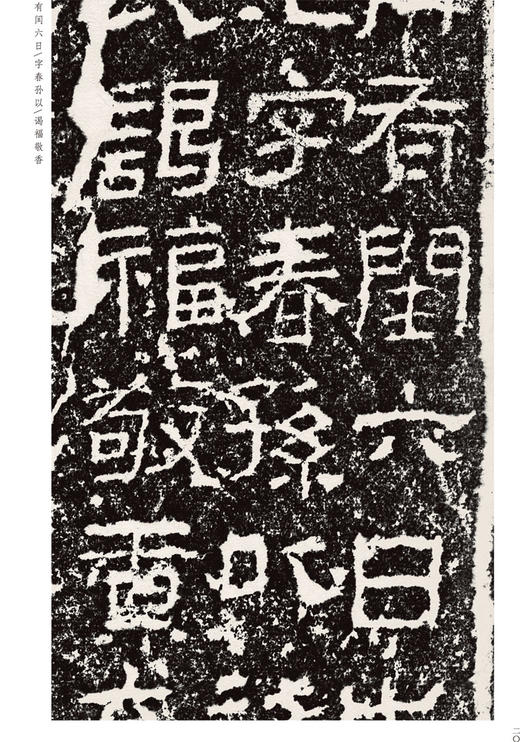 有闰六日\字春孙以\谒福敬香
有閏六日
字春孫以
謁福敬
二〇